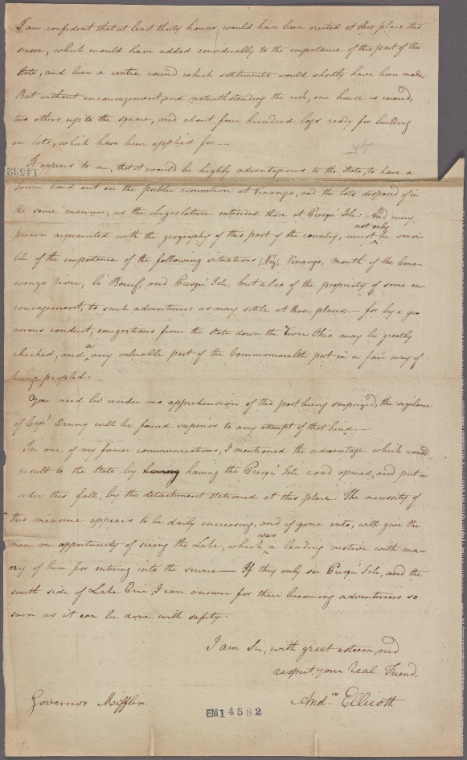 I am confident that at least thirty houses, would have been erected at this place this
season, which would have added considerably to the importance of this part of the
State, and been a centre round which settlements would shortly have been made
But without encouragement, and notwithstanding the risk, one house is covered,
two others up to the square, and about four hundred logs ready for building
on lots, which have been applied for —
It appears to me, that it would be highly advantageous to the State, to have a
Town laid out on the public reservation at Vinango, and the lots disposed of in
the same manner, as the Legislature intended those at Presqu' Isle: And any
person acquainted with the geography of this part of the country, must not only be sensi-
ble of the importance of the following situations, (Viz) Vinango, mouth of the Cona-
wongo river, Le Bœuff, and Presqu' Isle but also of the propriety of some en-
couragement, to such adventurers as may settle at those places — for by a ge-
nerous conduct, emigrations from the State down the River Ohio may be greatly
checked, and a very valuable part of the Commonwealth put in a fair way of
being peopled.
You need be under no apprehensions of this post being surprized, the vigilance
of Capt Denny will be found superior to any attempt of that kind —
In one of my former communications, I mentioned the advantage which would
result to the State by having the Presqu' Isle road opened, and put in
order this fall, by the detachment stationed at this place. The necessity of
this measure appears to be daily increasing, and if gone into, will give the
men an opportunity of seeing the Lake, which was a leading motive with ma-
ny of them for entering into the service — If they only see Presqu' Isle, and the
south side of Lake Erie, I can answer for their becoming adventurers so
soon as it can be done with safety.
I am Sir, with great esteem, and
respect, your real Friend.
Andw Ellicott
Governor Mifflin
EM14582